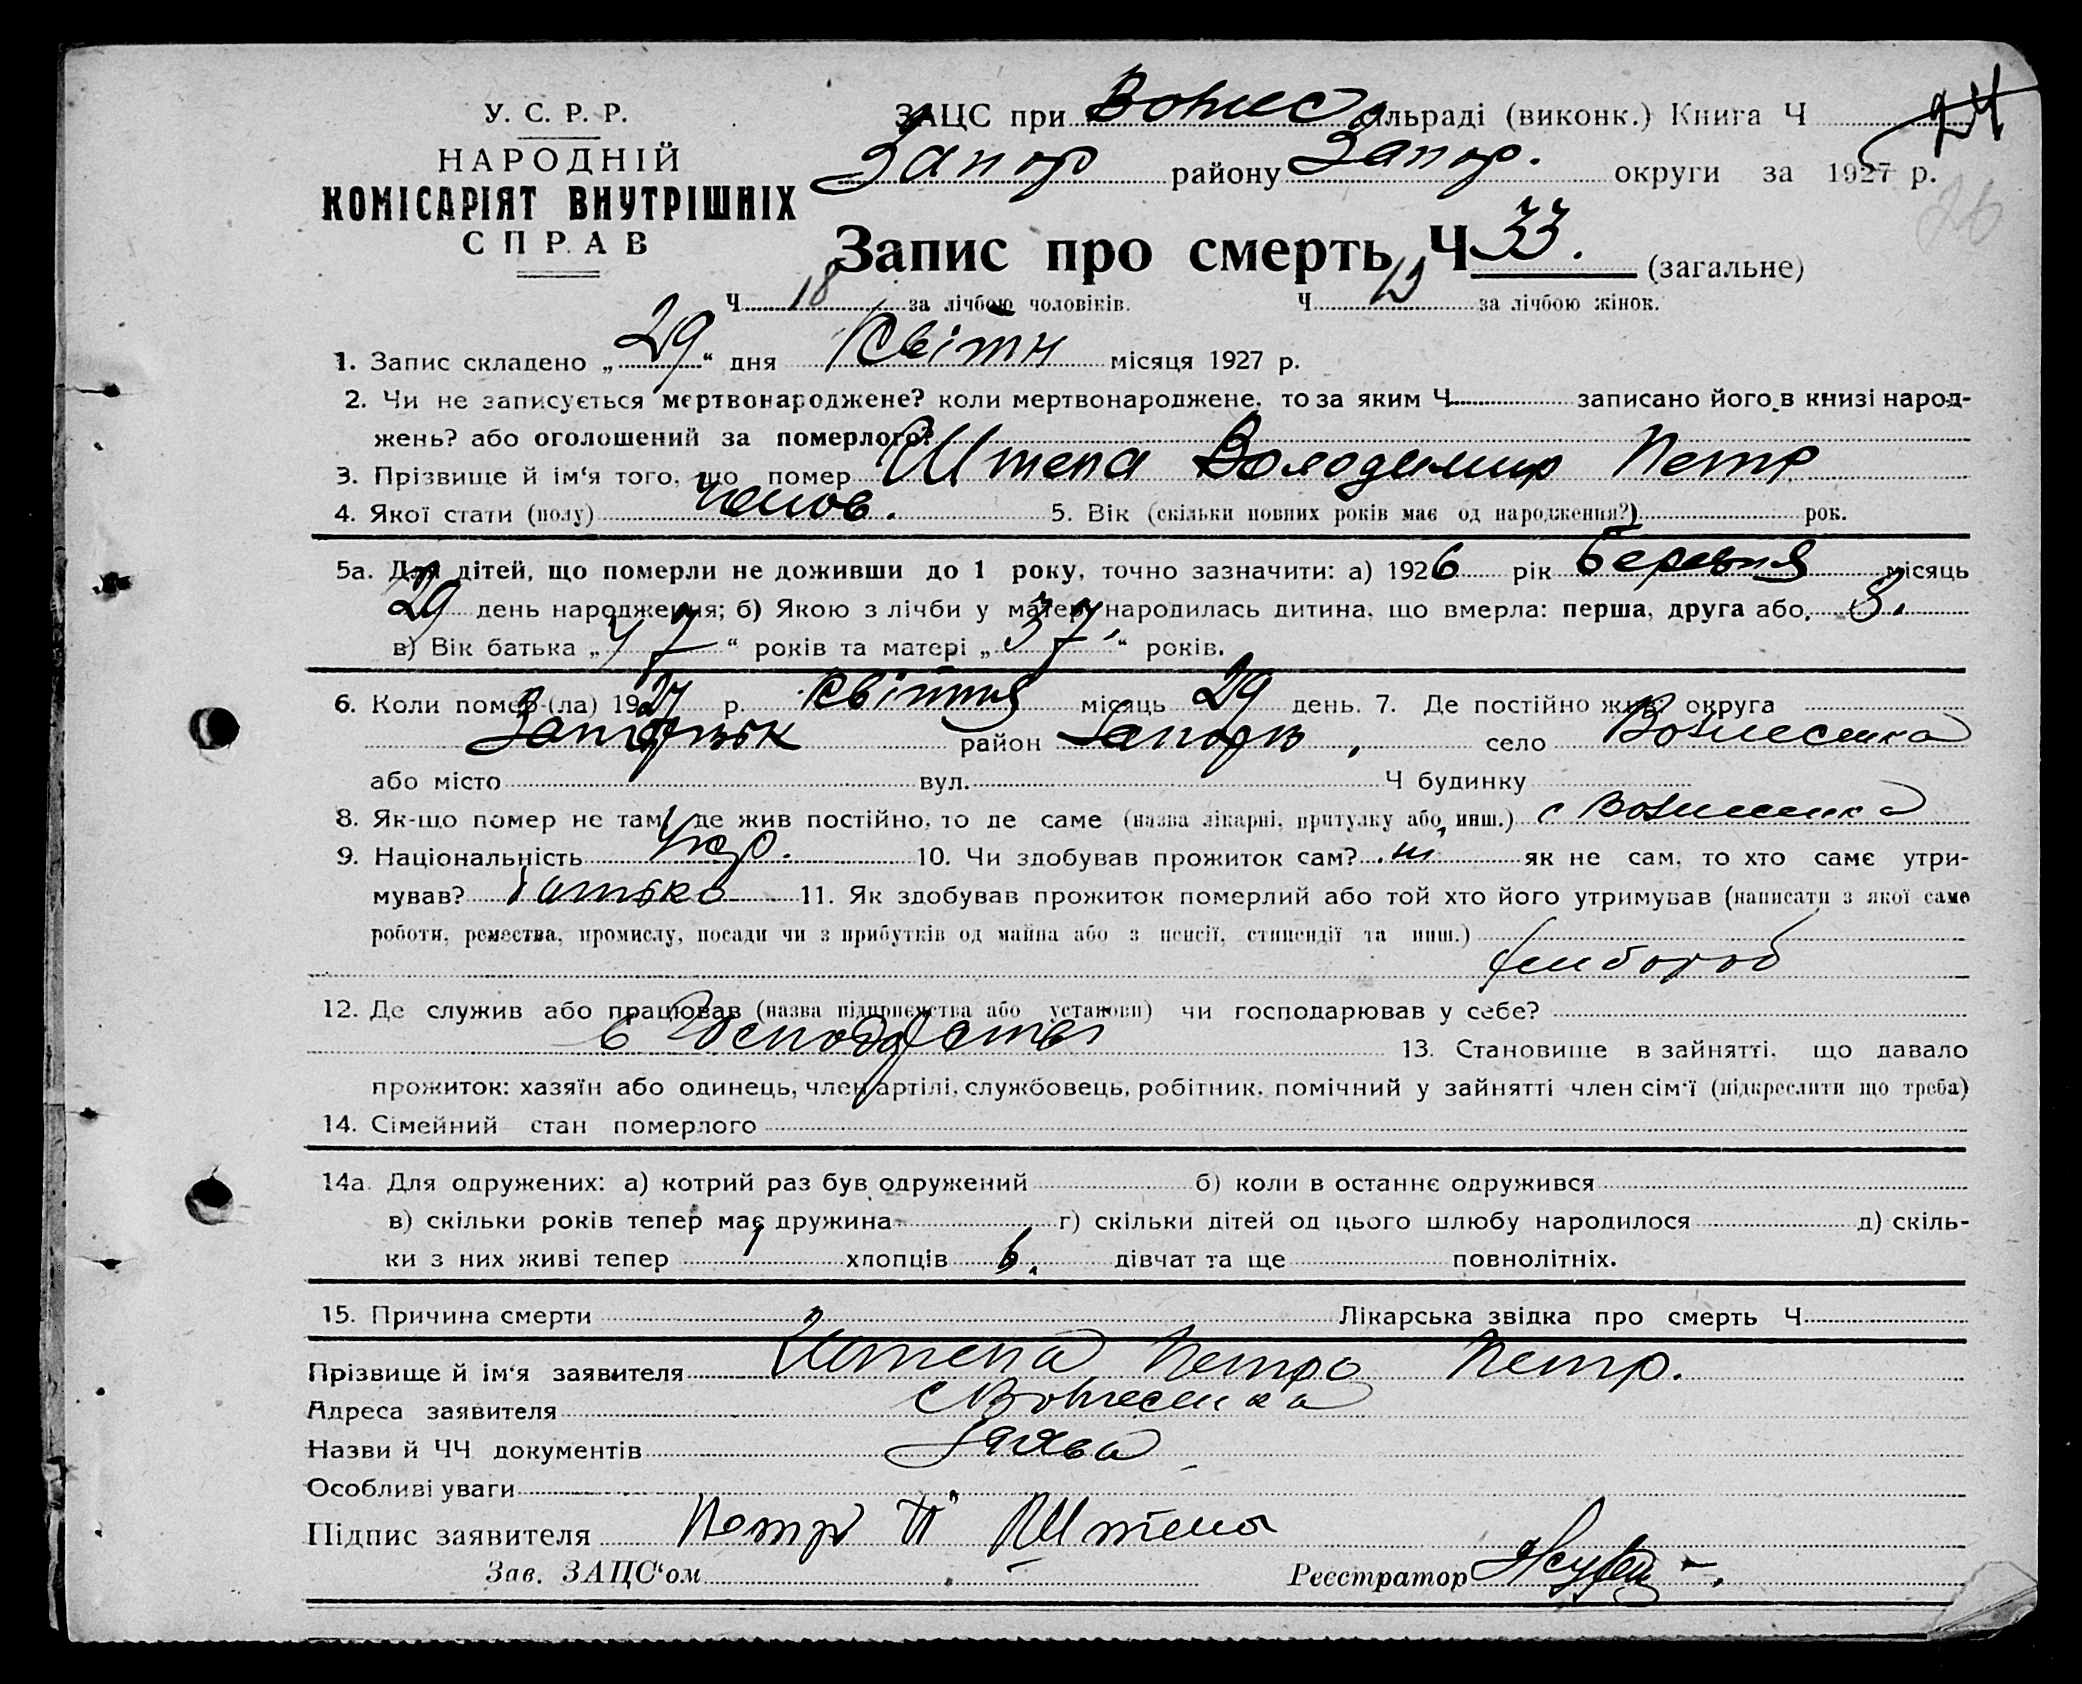 У. С. Р. Р.
НАРОДНІЙ
КОМІСАРІЯТ ВНУТРІШНІХ
СПРАВ
ЗАЦС при Вознес сільраді (виконк.) Книга Ч 24
Запор району Запор. округи за 1927 р.
26
Запис про смерть Ч 33. (загальне)
Ч 18 за лічбою чоловіків. Ч за лічбою жінок.
1. Запис складено „29“ дня Квітн місяця 1927 р.
2. Чи не записується мертвонароджене? коли мертвонароджене, то за яким Ч записано його в книзі народ-
жень? або оголошений за померлого?
3. Прізвище й ім‘я того, що помер Штепа Володимир Петр
4. Якої стати (полу) чолов. 5. Вік (скільки повних років має од народження?) рок.
5а. Для дітей, що померли не доживши до 1 року, точно зазначити: а) 1926 рік Березня місяць
29 день народження; б) Якою з лічби у матері народилась дитина, що вмерла: перша, друга або 8.
в) Вік батька „47“ років та матері „37“ років.
6. Коли помер-(ла) 1927 р. Квітня місяць 29 день. 7. Де постійно жив: округа
район село Вознесенка
або місто вул. Ч будинку
8. Як-що помер не там, де жив постійно, то де саме (назва лікарні, притулку або инш.) с Вознесенка
9. Національність Укр. 10. Чи здобував прожиток сам? ні як не сам, то хто саме утри-
мував? батько 11. Як здобував прожиток померлий або той хто його утримував (написати з якої саме
роботи, ремества, промислу, посади чи з прибутків од майна або з пенсії, стипендії та инш.)
хлібороб
12. Де служив або працював (назва підприємства або установи) чи господарював у себе?
в Господарстві 13. Становище в зайнятті, що давало
прожиток: хазяїн або одинець, член артілі, службовець, робітник, помічний у зайнятті член сім‘ї (підкреслити що треба)
14. Сімейний стан померлого
14а. Для одружених: а) котрий раз був одружений б) коли в останнє одружився
в) скільки років тепер має дружина г) скільки дітей од цього шлюбу народилося д) скіль-
ки з них живі тепер 1 хлопців 6. дівчат та ще повнолітніх.
15. Причина смерти Лікарська звідка про смерть Ч
Прізвище й ім‘я заявителя Штепа Петро Петр.
Адреса заявителя с Вознесенка
Назви й ЧЧ документів Заява
Особливі уваги
Підпис заявителя Петр П Штепа
Зав. ЗАЦС‘ом Реєстратор